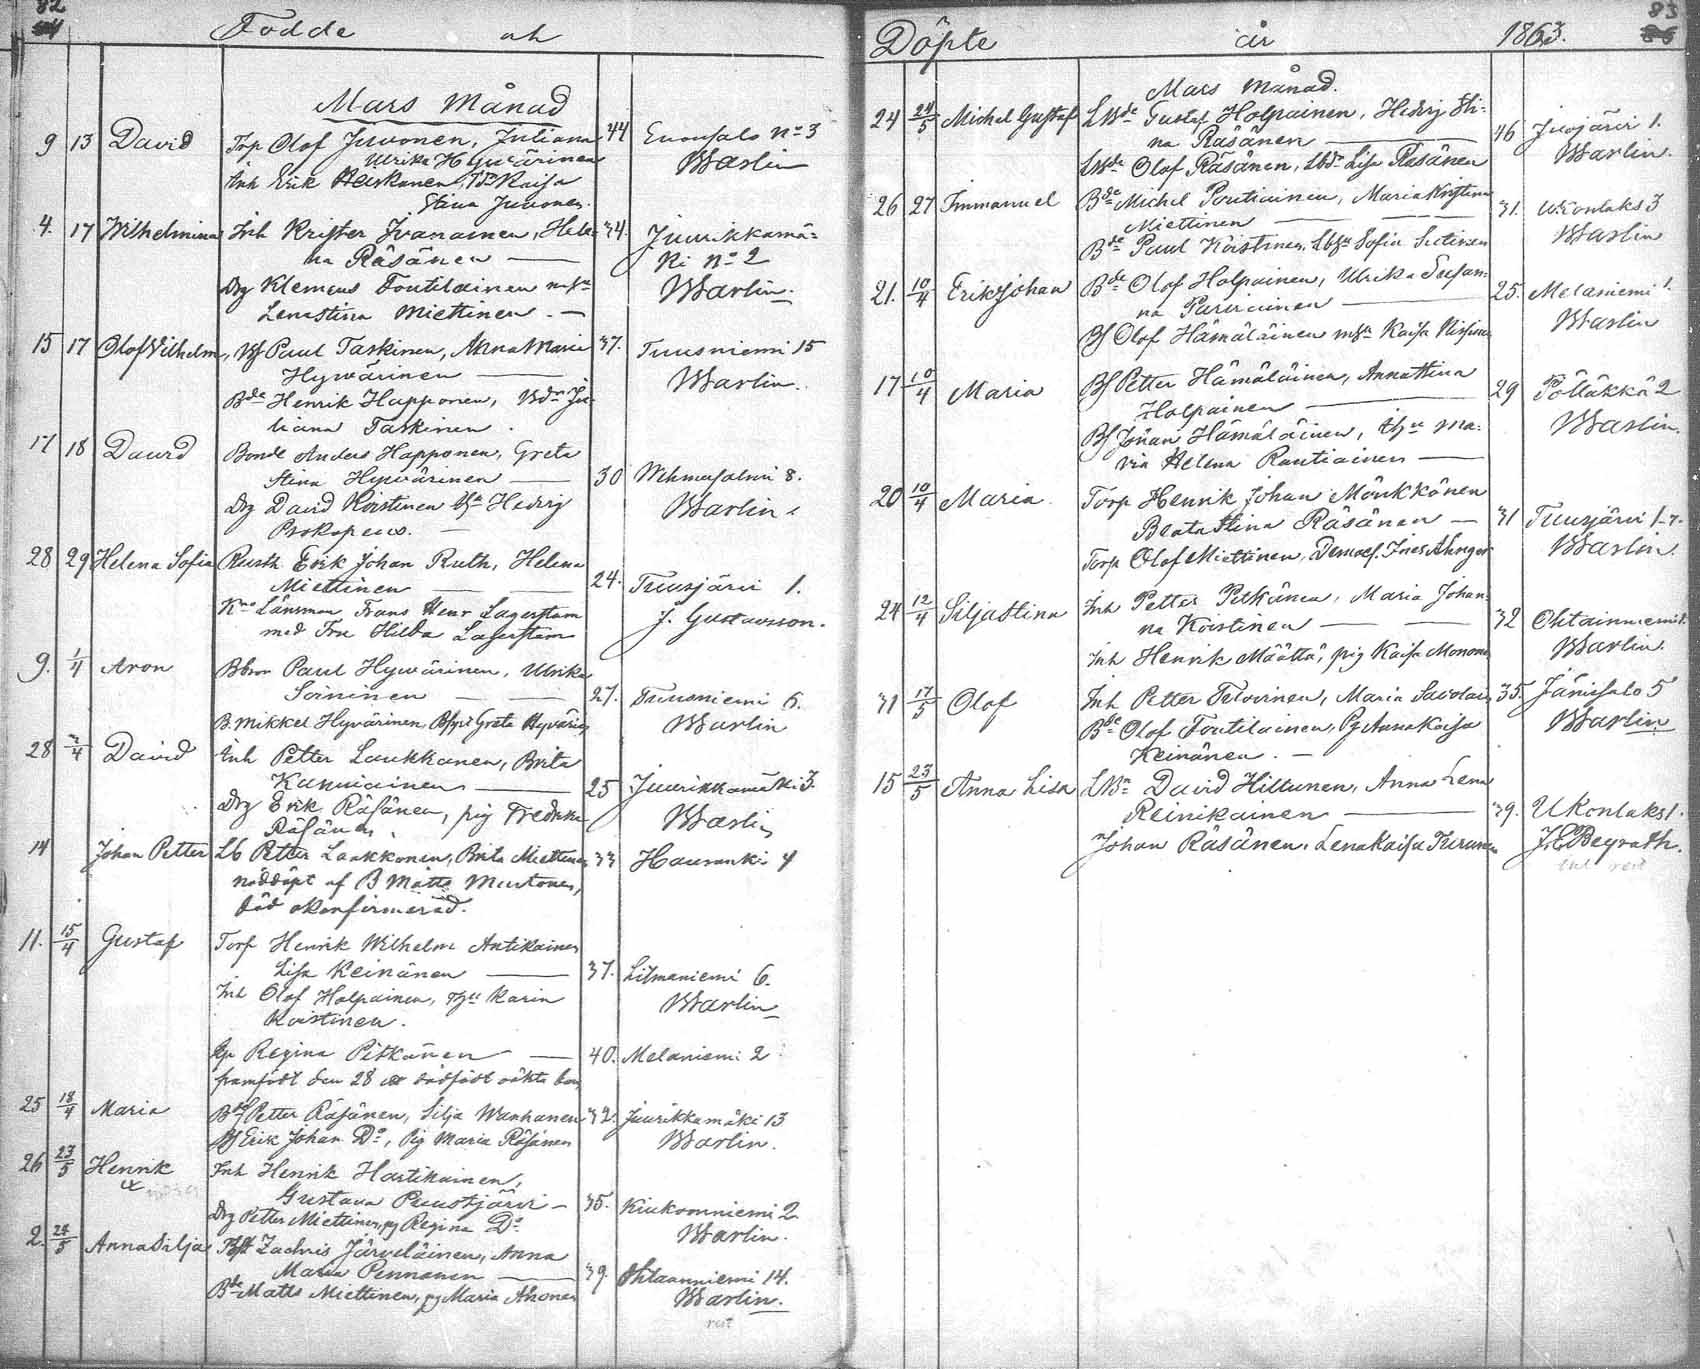 82
Födde och
Mars Månad
9 13 David Torp Olof Juvonen, Juliana 44 Enonsalo No 3
Ulrika Hyvärinen Warlin
Inh Erik Heiskanen, Kaisa
Stina Juvonen.
4. 17 Wilhelmina Inh Krister Ivanainen, Hele- 34. Juurikkamä-
na Räsänen ki No 2
Drg Klemens Toutilainen
Lenastina Miettinen. Warlin.
15 17 Olof Vilhelm, Bf Paul Taskinen, Anna Maria 37. Tuusniemi 15
Hyvärinen Warlin.
Bde Henrik Happonen, Ju-
liana Taskinen.
17 18 David Bonde Anders Happonen, Greta
Stina Hyvärinen 30 Wehmasalmi 8.
Drg David Koistinen Hedvig Warlin
Prokopeus.
28 29 Helena Sofia Rusth Erik Johan Ruth, Helena
Miettinen 24. Tuusjärvi 1.
Länsman Frans Henr Lagerstam J. Gustavsson.
med Fru Hilda Lagerstam
9. 1/4 Aron Paul Hyvärinen, Ulrika
Soininen 27. Tuusniemi 6.
B. Mikkel Hyvärinen, Greta Hyvärin Warlin
28 David Inh Petter Laukkanen, Brita
25 Juurikkamäki 3.
Drg Erik Räsänen, pig Fredrika Warlin
Räsänen
14 Johan Petter Lb Petter Laakkonen, Brita Miettinen 33 Hauranki 4
nöddöpt af B Matts Mustonen,
död okonfirmerad.
11. 15/4 Gustaf Torp Henrik Wilhelm Antikainen
Lisa Keinänen 37. Litmaniemi 6.
Inh Olof Holpainen, Karin Warlin
Koistinen.
Regina Pitkänen 40. Melaniemi 2
framfödt den 28 dödfödt oäkta barn
25 18/4 Maria Petter Räsänen, Silja Wanhanen 32. Juurikkamäki 13
Bf Erik Johan Do, Pig Maria Räsänen Warlin.
26 23/5 Henrik Inh Henrik Hartikainen,
Gustava Puustjärvi 35. Kiukoonniemi 2
Drg Petter Miettinen, pg Regina Do Warlin.
2. 24/5 Anna Silja Zachris Järveläinen, Anna
Maria Pennanen 39. Ohtaanniemi 14.
Bde Matts Miettinen, pg Maria Ahonen Warlin.
83
Döpte år 1863.
Mars Månad.
24 24/5 Michel Gustaf Gustaf Holpainen, Hedvig Sti-
na Räsänen 46 Juojärvi 1.
Olof Räsänen, Lisa Räsänen Warlin.
26 27 Immanuel Bde Michel Poutiainen, Maria Kristina
Miettinen 31. U.Kontaks 3
Bde Paul Koistinen, Sofia Sutinen Warlin
21. 10/4 Erik Johan Bde Olof Holpainen, Ulrika Susan-
na Parviainen 25. Melaniemi 1.
Bf Olof Hämäläinen Kaisa Nissinen Warlin
17 10/4 Maria Bf Petter Hämäläinen, Annastina
Holpainen 29 Pölläkkä 2
Bf Johan Hämäläinen, Ma-
ria Helena Rautiainen Warlin.
20 10/4 Maria Torp Henrik Johan Mönkkönen
Beata Stina Räsänen 31 Tuusjärvi 1-7.
Torp Olof Miettinen, Warlin.
24 12/4 Siljastina Inh Petter Pitkänen, Maria Johan-
na Koistinen 32 Ohtaanniemi
Inh Henrik Määttä, pig Kaisa Mononen Warlin.
31 17/5 Olof Inh Petter Maria Savolain 35. Jänissalo 5
Bde Olof Toutilainen, Pg Anna Kaisa Warlin
Keinänen.
15 23/5 Anna Lisa David Hiltunen, Anna Lena
Reinikainen 39. U Kontaks 1.
Johan Räsänen, Lena Kaisa Turunen